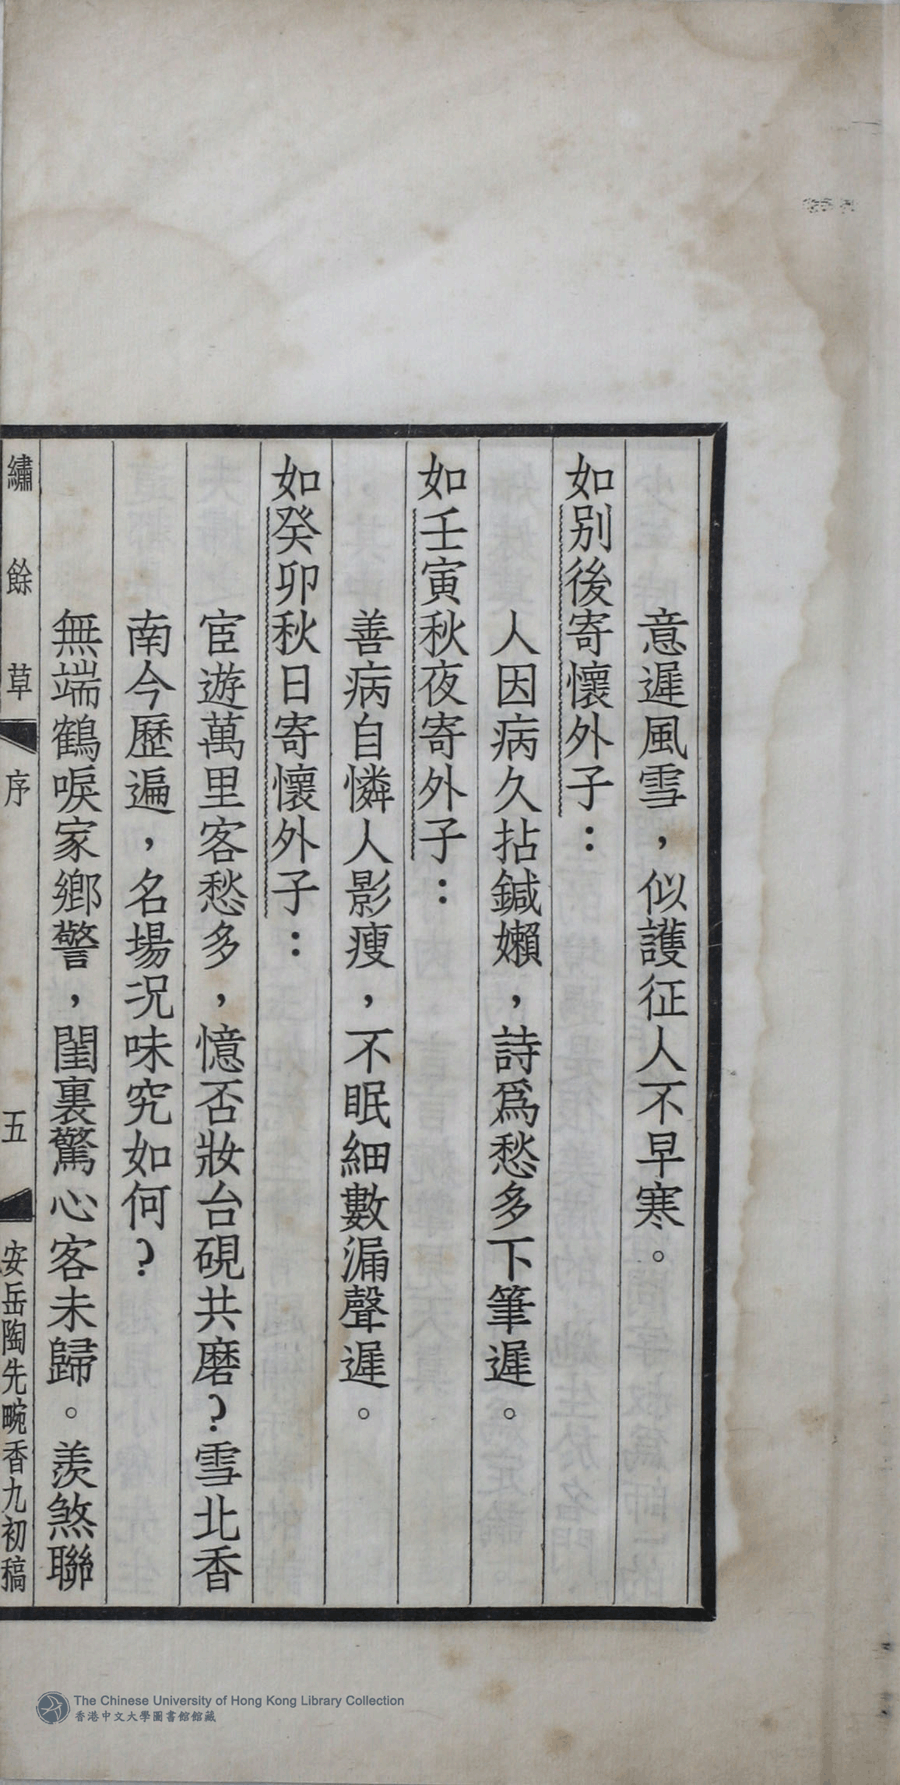 意遲風雪，似護征人不早寒。
如别後寄懷外子：
人因病久拈鍼嬾，詩爲愁多下筆遲。
如壬寅秋夜寄外子：
善病自憐人影瘦，不眠細數漏聲遲。
如癸卯秋日寄懷外子：
宦遊萬里客愁多，憶否妝台硯共磨？雪北香
南今歷遍，名場況味究如何？
無端鶴唳家鄉警，閨裏驚心客未歸。羨煞聯
繡餘草 序 五 安岳陶先畹香九初稿
The Chinese University of Hong Kong Library Collection
香港中文大學圖書館館藏